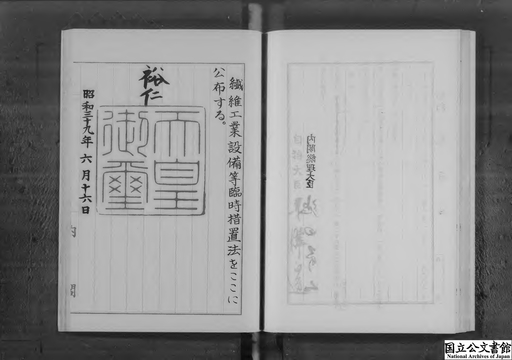 繊維工業設備等臨時措置法をここに
公布する。
裕仁
天皇
御璽
昭和三十九年六月十六日
内閣
内閣総理大臣
国立公文書館
National Archives of Japan